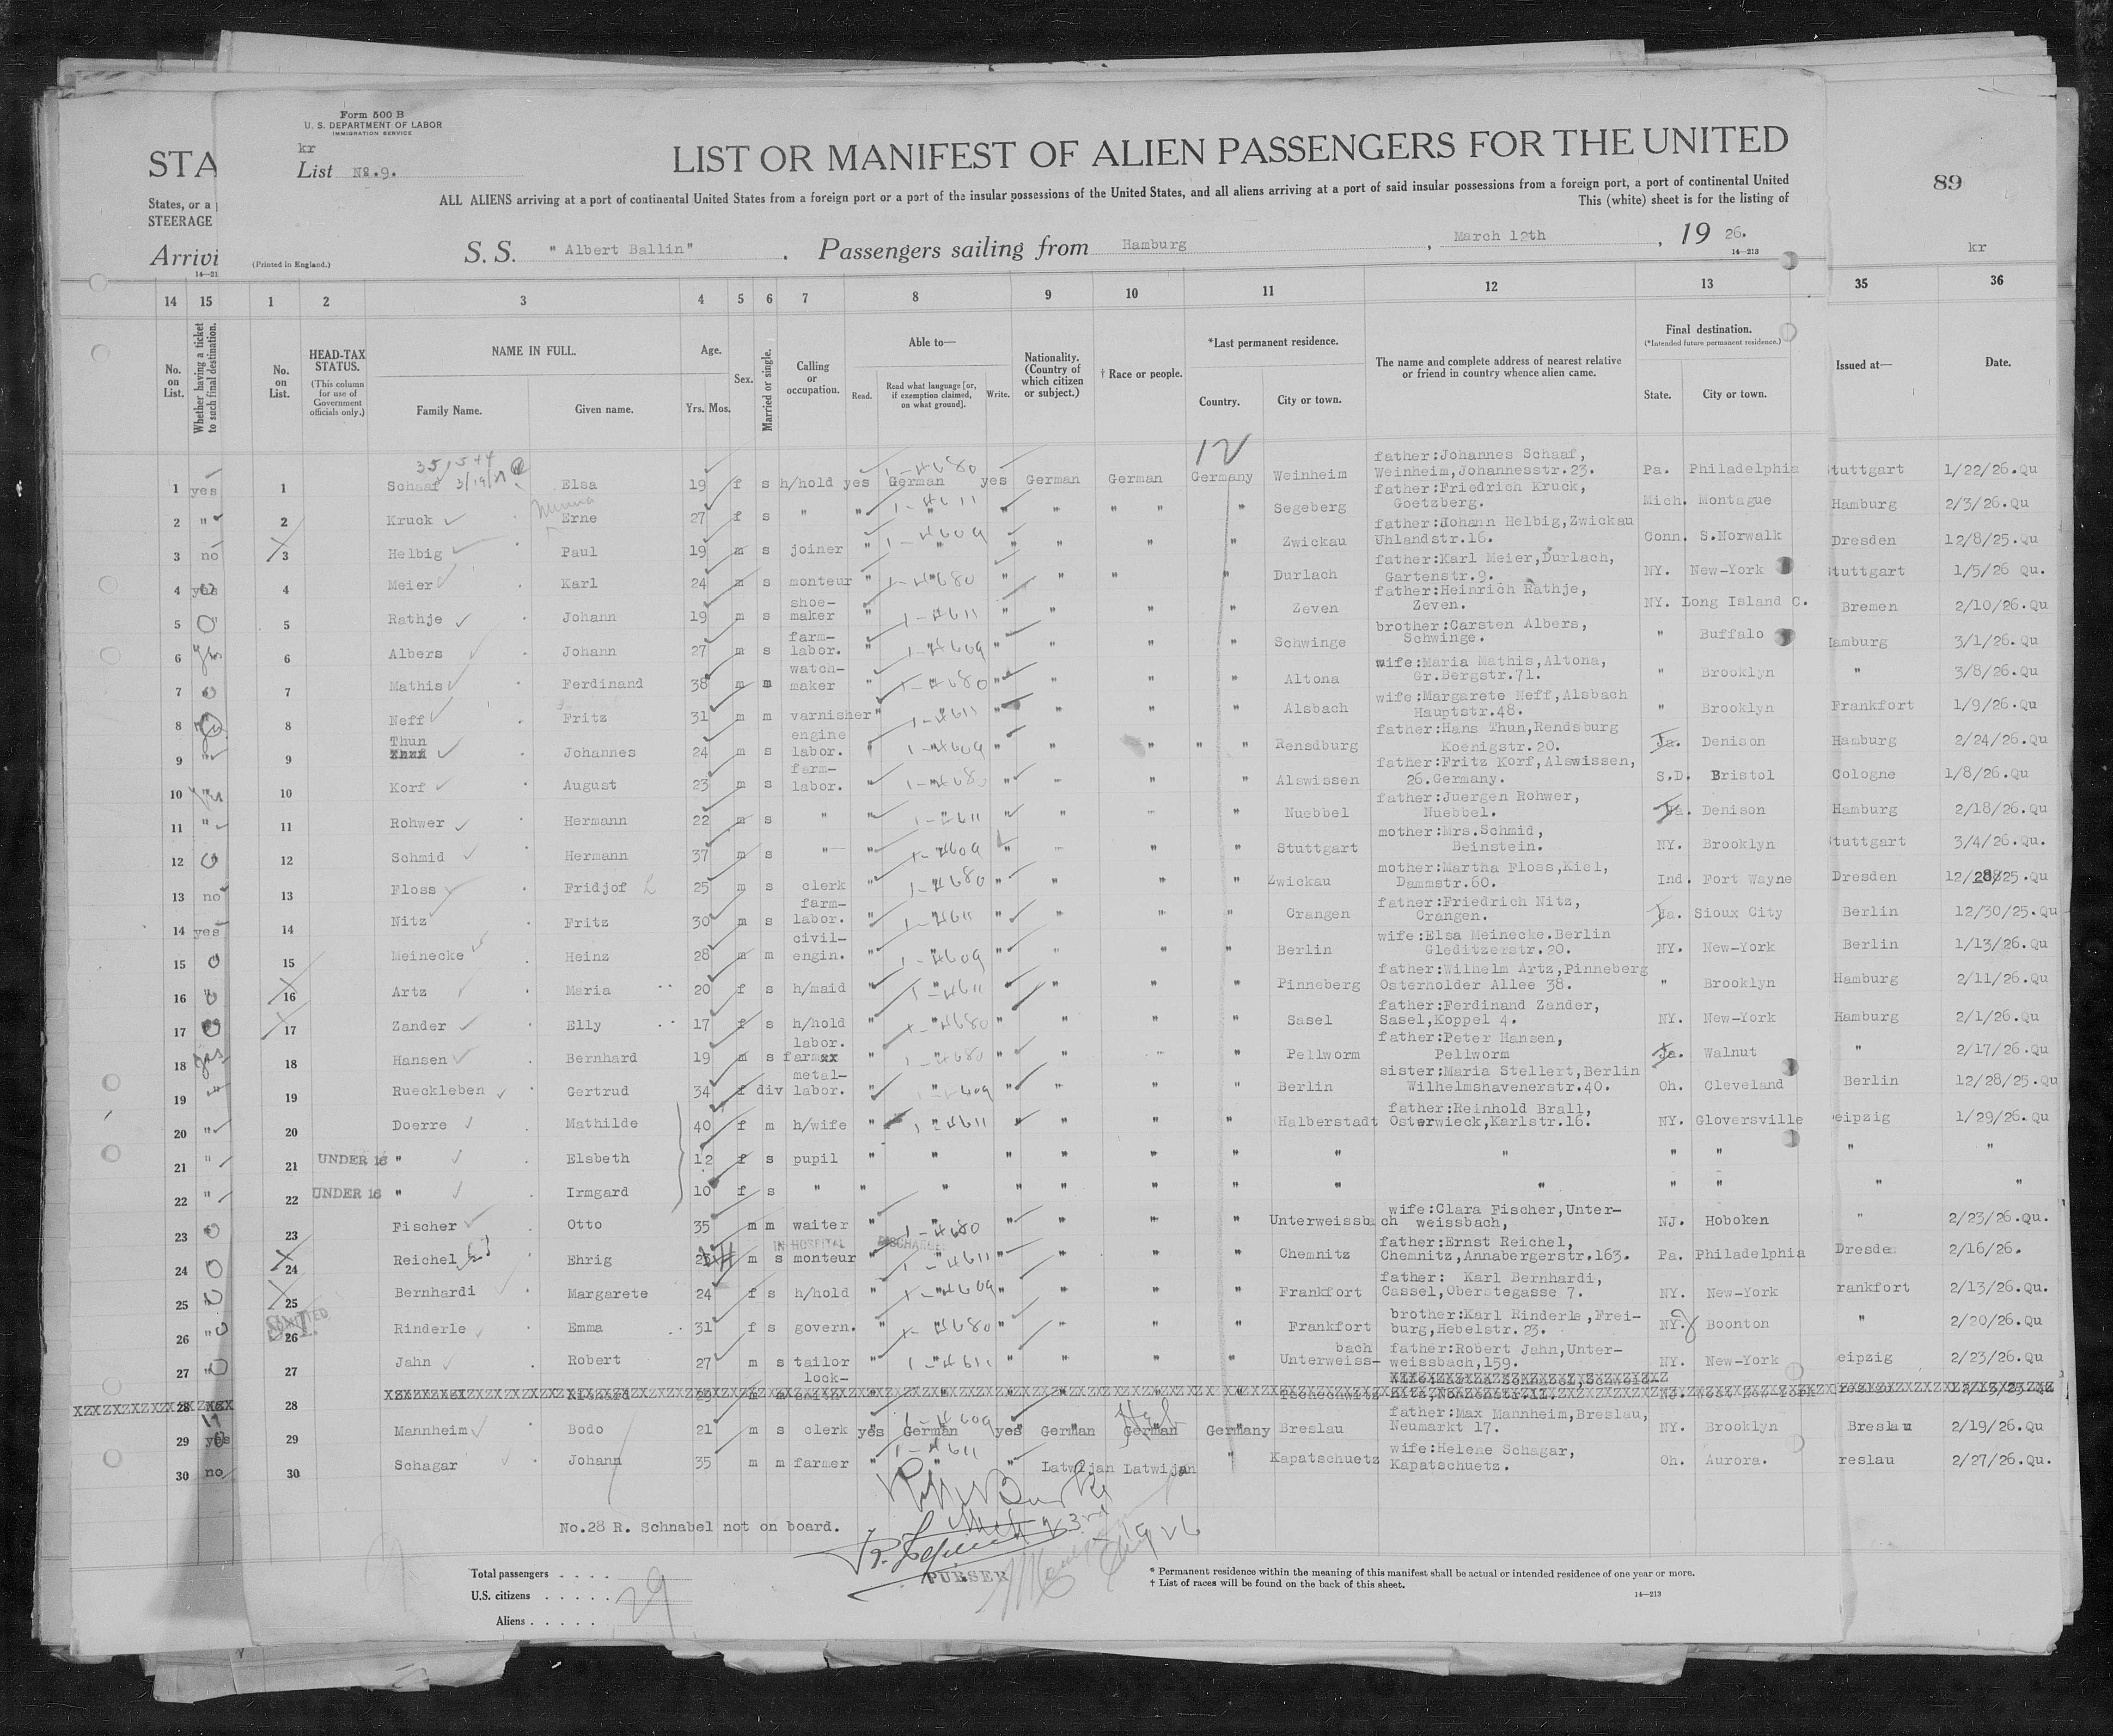 Form 500 B
U. S. DEPARTMENT OF LABOR
IMMIGRATION SERVICE
kr
STA
List No. 9.
LIST OR MANIFEST OF ALIEN PASSENGERS FOR THE UNITED
89
States, or a
STEERAGE
ALL ALIENS arriving at a port of continental United States from a foreign port or a port of the insular possessions of the United States, and all aliens arriving at a port of said insular possessions from a foreign port, a port of continental United
This (white) sheet is for the listing of
Arrivi
14—21
(Printed in England.)
S. S. "Albert Ballin". Passengers sailing from Hamburg, March 12th, 19 26.
14—213
kr
14 15 1 2 3 4 5 6 7 8 9 10 11 12 13 35 36
No. on List.
Whether having a ticket to such final destination.
No. on List.
HEAD-TAX STATUS.
(This column for use of Government officials only.)
NAME IN FULL.
Family Name. Given name.
Age.
Yrs. Mos.
Sex.
Married or single.
Calling or occupation.
Able to—
Read. Read what language [or, if exemption claimed, on what ground]. Write.
Nationality. (Country of which citizen or subject.)
† Race or people.
*Last permanent residence.
Country. City or town.
The name and complete address of nearest relative or friend in country whence alien came.
Final destination.
(*Intended future permanent residence.)
State. City or town.
Issued at—
Date.
12
1 yes 1 Schaaf Elsa 19 f s h/hold yes German yes German German Germany Weinheim father:Johannes Schaaf, Weinheim,Johannesstr.23. Pa. Philadelphia tuttgart 1/22/26.Qu
1-4680
2 " 2 Kruck Erne 27 f s " " " " " " " " Segeberg father:Friedrich Kruck, Goetzberg. Mich. Montague Hamburg 2/3/26.Qu
Minna
1-4611
3 no 3 Helbig Paul 19 m s joiner " " " " " " Zwickau father:Johann Helbig,Zwickau Uhlandstr.16. Conn. S.Norwalk Dresden 12/8/25.Qu
1-4609
4 yes 4 Meier Karl 24 m s monteur " " " " " " Durlach father:Karl Meier,Durlach, Gartenstr.9. NY. New-York tuttgart 1/5/26 Qu.
1-4680
5 5 Rathje Johann 19 m s shoe-maker " " " " " Zeven father:Heinrich Rathje, Zeven. NY. Long Island C. Bremen 2/10/26.Qu
1-4611
6 yes 6 Albers Johann 27 m s farm-labor. " " " " " " Schwinge brother:Carsten Albers, Schwinge. " Buffalo amburg 3/1/26.Qu
1-4609
7 7 Mathis Ferdinand 38 m m watch-maker " " " " " " Altona wife:Maria Mathis,Altona, Gr.Bergstr.71. " Brooklyn " 3/8/26.Qu
1-4680
8 8 Neff Fritz 31 m m varnisher " " " " " " Alsbach wife:Margarete Neff,Alsbach Hauptstr.48. " Brooklyn Frankfort 1/9/26.Qu
1-4611
9 " 9 Thun Johannes 24 m s engine labor. " " " " " " " Rensdburg father:Hans Thun,Rendsburg Koenigstr.20. Ja. Denison Hamburg 2/24/26.Qu
1-4609
10 10 Korf August 23 m s farm-labor. " " " " " " Alswissen father:Fritz Korf,Alswissen, 26.Germany. S.D. Bristol Cologne 1/8/26.Qu
1-4680
11 " 11 Rohwer Hermann 22 m s " " " " " " " Nuebbel father:Juergen Rohwer, Nuebbel. Ja. Denison Hamburg 2/18/26.Qu
1-4611
12 12 Schmid Hermann 37 m s " " " " " " " Stuttgart mother:Mrs.Schmid, Beinstein. NY. Brooklyn tuttgart 3/4/26.Qu.
1-4609
13 no 13 Floss Fridjof 25 m s clerk " " " " " " Zwickau mother:Martha Floss,Kiel, Dammstr.60. Ind. Fort Wayne Dresden 12/28/25.Qu
1-4680
14 yes 14 Nitz Fritz 30 m s farm-labor. " " " " " " Crangen father:Friedrich Nitz, Crangen. Ja. Sioux City Berlin 12/30/25.Qu
1-4611
15 15 Meinecke Heinz 28 m m civil-engin. " " " " " " Berlin wife:Elsa Meinecke.Berlin Gleditzerstr.20. NY. New-York Berlin 1/13/26.Qu
1-4609
16 16 Artz Maria 20 f s h/maid " " " " " " Pinneberg father:Wilhelm Artz,Pinneberg Osterholder Allee 38. " Brooklyn Hamburg 2/11/26.Qu
1-4611
17 17 Zander Elly 17 f s h/hold " " " " " " Sasel father:Ferdinand Zander, Sasel,Koppel 4. NY. New-York Hamburg 2/1/26.Qu
1-4680
18 yes 18 Hansen Bernhard 19 m s labor. farmxx " " " " " " Pellworm father:Peter Hansen, Pellworm Ja. Walnut " 2/17/26.Qu
1-4680
19 " 19 Rueckleben Gertrud 34 f div metal-labor. " " " " " " Berlin sister:Maria Stellert,Berlin Wilhelmshavenerstr.40. Oh. Cleveland Berlin 12/28/25.Qu
1-4609
20 " 20 Doerre Mathilde 40 f m h/wife " " " " " " Halberstadt father:Reinhold Brall, Osterwieck,Karlstr.16. NY. Gloversville eipzig 1/29/26.Qu
1-4611
21 " 21 UNDER 16 " Elsbeth 12 f s pupil " " " " " " " " " " " "
22 " 22 UNDER 16 " Irmgard 10 f s " " " " " " " " " " " " "
23 23 Fischer Otto 35 m m waiter " " " " " " Unterweissbach wife:Clara Fischer,Unter-weissbach, NJ. Hoboken " 2/23/26.Qu.
1-4680
IN HOSPITAL DISCHARGED
24 24 Reichel Ehrig m s monteur " " " " " " Chemnitz father:Ernst Reichel, Chemnitz,Annabergerstr.163. Pa. Philadelphia Dresde 2/16/26.
1-4611
25 25 Bernhardi Margarete 24 f s h/hold " " " " " " Frankfort father: Karl Bernhardi, Cassel,Oberstegasse 7. NY. New-York rankfort 2/13/26.Qu.
1-4609
ADMITTED
26 " 26 Rinderle Emma 31 f s govern. " " " " " " Frankfort brother:Karl Rinderle,Frei-burg,Hebelstr.23. NY. Boonton " 2/20/26.Qu
1-4680
27 " 27 Jahn Robert 27 m s tailor " " " " " " Unterweiss-bach father:Robert Jahn,Unter-weissbach,159. NY. New-York eipzig 2/23/26.Qu
1-4611
28 28 Richard 29 m m lock-smith
29 yes 29 Mannheim Bodo 21 m s clerk yes German yes German German Germany Breslau father:Max Mannheim,Breslau, Neumarkt 17. NY. Brooklyn Breslau 2/19/26.Qu
1-4609
Heb
30 no 30 Schagar Johann 35 m m farmer " " " Latwijan Latwijan " Kapatschuetz wife:Helene Schagar, Kapatschuetz. Oh. Aurora. reslau 2/27/26.Qu.
1-4611
No.28 R. Schnabel not on board.
PURSER
Total passengers . . . .
U.S. citizens . . . . .
29
Aliens . . . . .
* Permanent residence within the meaning of this manifest shall be actual or intended residence of one year or more.
† List of races will be found on the back of this sheet.
14—213